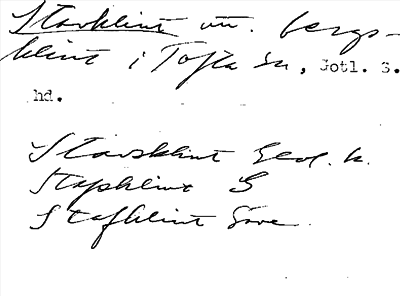 Stavklint utt. bergs-
klint i Tofta sn, Gotl. S.
hd.
Stavsklint Geol. k.
Stafklint G
Stafklint Säve